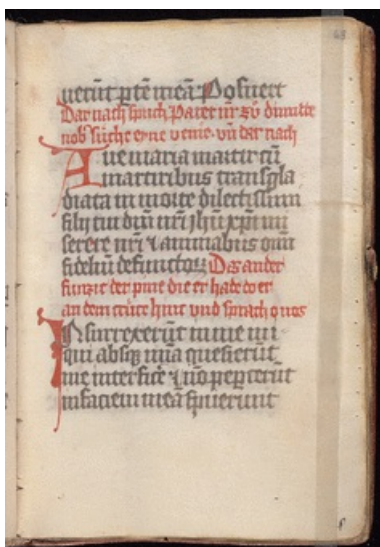 uerūt ꝑtē meā Posuere
Dar nach sprich Pater nr̄ Et dimitte
nob̄ suche eyne venie vn̄ dar nach
Aue maria martir cū
martiribus transgla
diata in morte dilectissimi
filij tui dn̄i nr̄i jhū xp̄i mi
serere nr̄i ⁊ animabus om̄
fideliū defunctoꝝ Das ander
der pine die er hade do er
an dem hinc vnd sprach o uos
Insurrexerūt in me ui
qui absq̄ mīa quesierūt
me interficē ⁊ nō peꝑcerūt
in faciem meā spuerunt